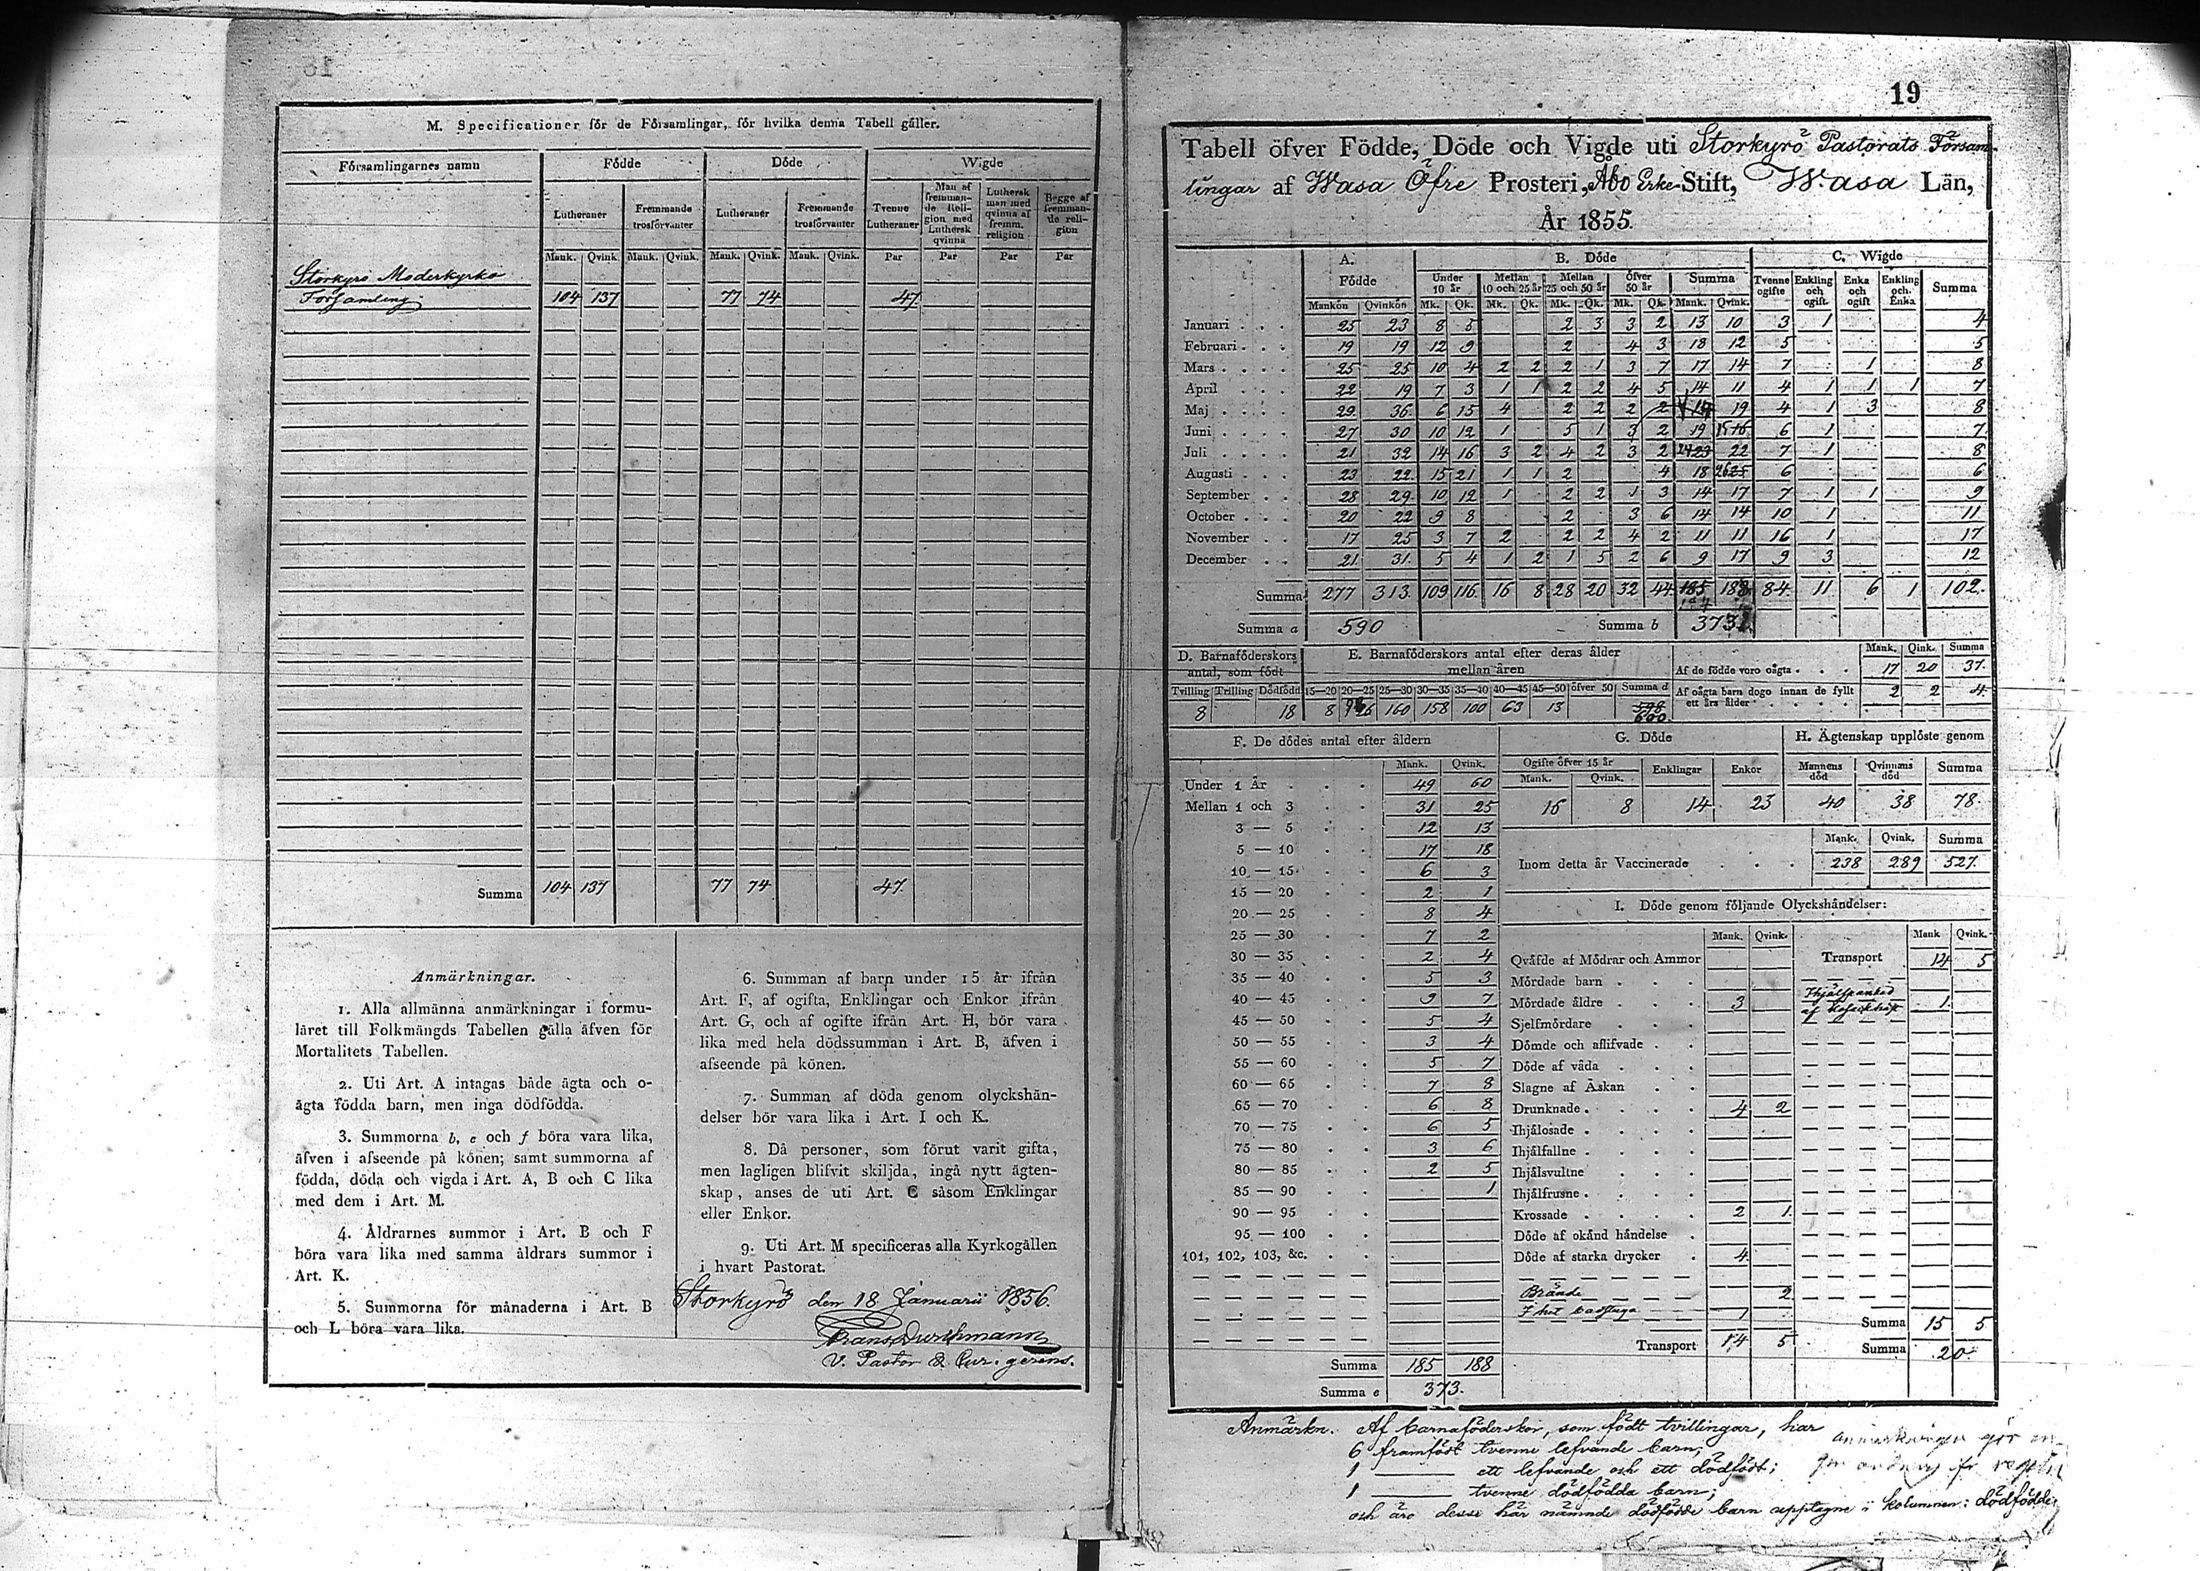 M. Specificationer för de Församlingar, för hvilka denna Tabell gäller.
Församlingarnes namn Födde Döde Wigde
Lutheraner Fremmande trosförvanter Lutheraner Fremmande trosförvanter Tvenne Lutheraner Man af fremmande Religion med Luthersk qvinna Luthersk man med qvinna af fremm. religion Begge af fremmande religion
Mank. Qvink. Mank. Qvink. Mank. Qvink. Mank. Qvink. Par Par Par Par
Storkyrö Moderkyrko
Församling 104 137 77 74 47
Summa 104 137 77 74 47
Anmärkningar.
1. Alla allmänna anmärkningar i formu-
läret till Folkmängds Tabellen gälla äfven för
Mortalitets Tabellen.
2. Uti Art. A intagas både ägta och o-
ägta födda barn, men inga dödfödda.
3. Summorna b, e och f böra vara lika,
äfven i afseende på könen; samt summorna af
födda, döda och vigda i Art. A, B och C lika
med dem i Art. M.
4. Åldrarnes summor i Art. B och F
böra vara lika med samma åldrars summor i
Art. K.
5. Summorna för månaderna i Art. B
och L böra vara lika.
6. Summan af barn under 15 år ifrån
Art. F, af ogifta, Enklingar och Enkor ifrån
Art. G, och af ogifte ifrån Art. H, bör vara
lika med hela dödssumman i Art. B, äfven i
afseende på könen.
7. Summan af döda genom olyckshän-
delser bör vara lika i Art. I och K.
8. Då personer, som förut varit gifta,
men lagligen blifvit skiljda, ingå nytt ägten-
skap, anses de uti Art. C såsom Enklingar
eller Enkor.
9. Uti Art. M specificeras alla Kyrkogällen
i hvart Pastorat.
Storkyrö den 18 Januarii 1856.
V. Pastor & Cur. gerens.
19
Tabell öfver Födde, Döde och Vigde uti Storkyrö Pastorats Försam-
lingar af Wasa Öfre Prosteri, Åbo Erke-Stift, Wasa Län,
År 1855.
A. Födde B. Döde C. Wigde
Under 10 år Mellan 10 och 25 år Mellan 25 och 50 år Öfver 50 år Summa Tvenne ogifte Enkling och ogift Enka och ogift Enkling och Enka Summa
Mankön Qvinkön Mk. Qk. Mk. Qk. Mk. Qk. Mk. Qk. Mank. Qvink.
Januari 25 23 8 5 2 3 3 2 13 10 3 1 4
Februari 19 19 12 9 2 4 3 18 12 5 5
Mars 25 25 10 4 2 2 2 1 3 7 17 14 7 1 8
April 22 19 7 3 1 1 2 2 4 5 14 11 4 1 1 1 7
Maj 29 36 6 15 4 2 2 2 2 14 19 4 1 3 8
Juni 27 30 10 12 1 5 1 3 2 19 15 16 6 1 7
Juli 21 32 14 16 3 2 4 2 3 2 24 23 22 7 1 8
Augusti 23 22 15 21 1 1 2 4 18 26 25 6 6
September 28 29 10 12 1 2 2 1 3 14 17 7 1 1 9
October 20 22 9 8 2 3 6 14 14 10 1 11
November 17 25 3 7 2 2 2 4 2 11 11 16 1 17
December 21 31 5 4 1 2 1 5 2 6 9 17 9 3 12
Summa 277 313 109 116 16 8 28 20 32 44 185 188 84 11 6 1 102.
Summa a 590 Summa b 373
D. Barnaföderskors antal, som födt E. Barnaföderskors antal efter deras ålder mellan åren Mank. Qink. Summa
Af de födde voro oägta 17 20 37.
Tvilling Trilling Dödfödd 15—20 20—25 25—30 30—35 35—40 40—45 45—50 öfver 50 Summa d
Af oägta barn dogo innan de fyllt ett års ålder 2 2 4
8 18 8 160 158 100 63 13 598
600.
F. De dödes antal efter åldern G. Döde H. Ägtenskap upplöste genom
Mank. Qvink. Ogifte öfver 15 år Mank. Qvink. Enklingar Enkor Mannens död Qvinnans död Summa
16 8 14 23 40 38 78.
Under 1 År 49 60
Mellan 1 och 3 31 25
3 — 5 12 13
5 — 10 17 18
10 — 15 6 3
15 — 20 2 1
20 — 25 8 4
25 — 30 7 2
30 — 35 2 4
35 — 40 5 3
40 — 45 9 7
45 — 50 5 4
50 — 55 3 4
55 — 60 5 7
60 — 65 7 8
65 — 70 6 8
70 — 75 6 5
75 — 80 3 6
80 — 85 2 5
85 — 90 1
90 — 95
95 — 100
101, 102, 103, &c.
Summa 185 188
Summa e 373.
Mank. Qvink. Summa
Inom detta år Vaccinerade 238 289 527.
I. Döde genom följande Olyckshändelser:
Mank. Qvink. Mank Qvink.
Qväfde af Mödrar och Ammor Transport 14 5
Mördade barn
Mördade äldre 3 1
Sjelfmördare
Dömde och aflifvade
Döde af våda
Slagne af Åskan
Drunknade 4 2
Ihjälosade
Ihjälfallne
Ihjälsvultne
Ihjälfrusne
Krossade 2 1
Döde af okänd händelse
Döde af starka drycker 4
Brände 2
I het badstuga 1
Transport 14 5
Summa 15 5
Summa 20.
Anmärkn. Af barnaföderskor, som födt tvillingar, har
6 framfödt tvenne lefvande barn;
1 —— ett lefvande och ett dödfödt;
1 —— tvenne dödfödda barn;
och äro desse här nämnde dödfödde barn upptagne i kolumnen: dödfödde